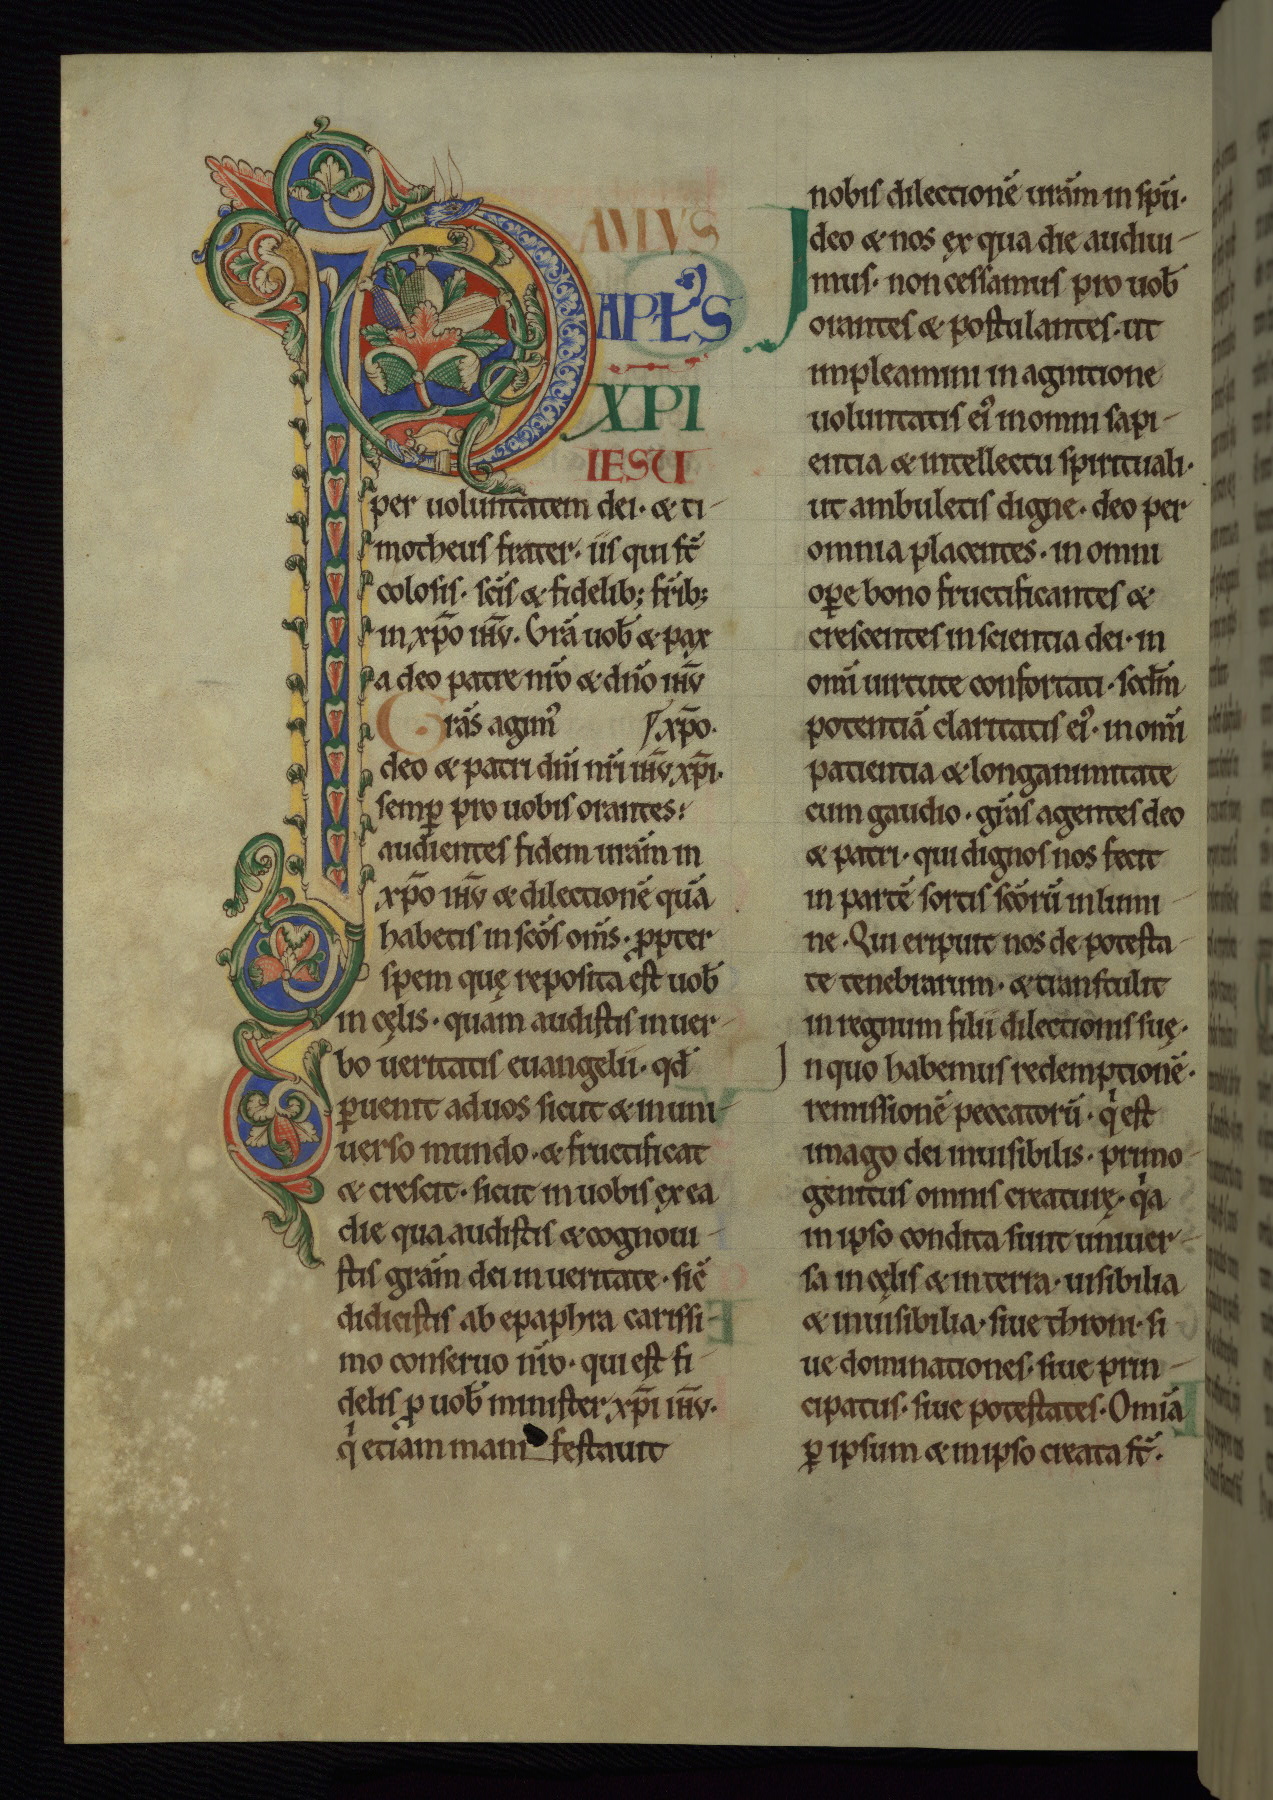 PAULUS
APŁ'S
XP̄I
IESU
per uoluntatem dei· & ti-
motheus frater· iis qui st̄
colosis· sc̄is & fidelib; fr̄ib;
in xp̄o ih̄u· Gr̄a uob̄ & pax
a deo patre nr̄o & dn̄o ih̄u
xp̄o·
Gr̄as agim᾽
deo & patri dn̄i nr̄i ih̄u xp̄i·
semp̱ pro uobis orantes:
audientes fidem ur̄am in
xp̄o ih̄u & dilectionē quā
habetis in sc̄os om̄s· ꝓpter
spem quę reposita est uob̄
in cęlis· quam audistis in uer-
bo ueritatis euangelii· qd̄
ꝑuenit ad uos sicut & in uni-
uerso mundo· & fructificat
& crescit· sicut in uobis ex ea
die qua audistis & cognoui-
stis gr̄am dei in ueritate· sic̄
didicistis ab epaphra carissi-
mo conseruo nr̄o· qui est fi-
delis ꝓ uob̄ minister xp̄i ih̄u·
qͥ etiam mani festauit
nobis dilectionē ur̄am in sp̄u·
Ideo & nos ex qua die audiui-
mus· non cessamus pro uob̄
orantes & postulantes· ut
impleamini in agnitione
uoluntatis ei᾽ in omni sapi-
entia & intellectu spirituali·
ut ambuletis digne· deo per
omnia placentes· in omni
oꝑe bono fructificantes &
crescentes in scientia dei· in
om̄i uirtute confortati· scd̄m
potentiā claritatis ei᾽· in om̄i
patientia & longanimitate
cum gaudio· gr̄as agentes deo
& patri· qui dignos nos fecit
in partē sortis sc̄orū in lumi-
ne· Qui eripuit nos de potesta-
te tenebrarum· & transtulit
in regnum filii dilectionis suę·
In quo habemus redemptionē·
remissionē peccatorū· qͥ est
imago dei inuisibilis· primo-
genitus omnis creaturę· qͥa
in ipso condita sunt uniuer-
sa in cęlis & in terra· uisibilia
& inuisibilia· siue throni· si-
ue dominationes· siue prin-
cipatus· siue potestates· Omīa
ꝑ ipsum & in ipso creata st̄·